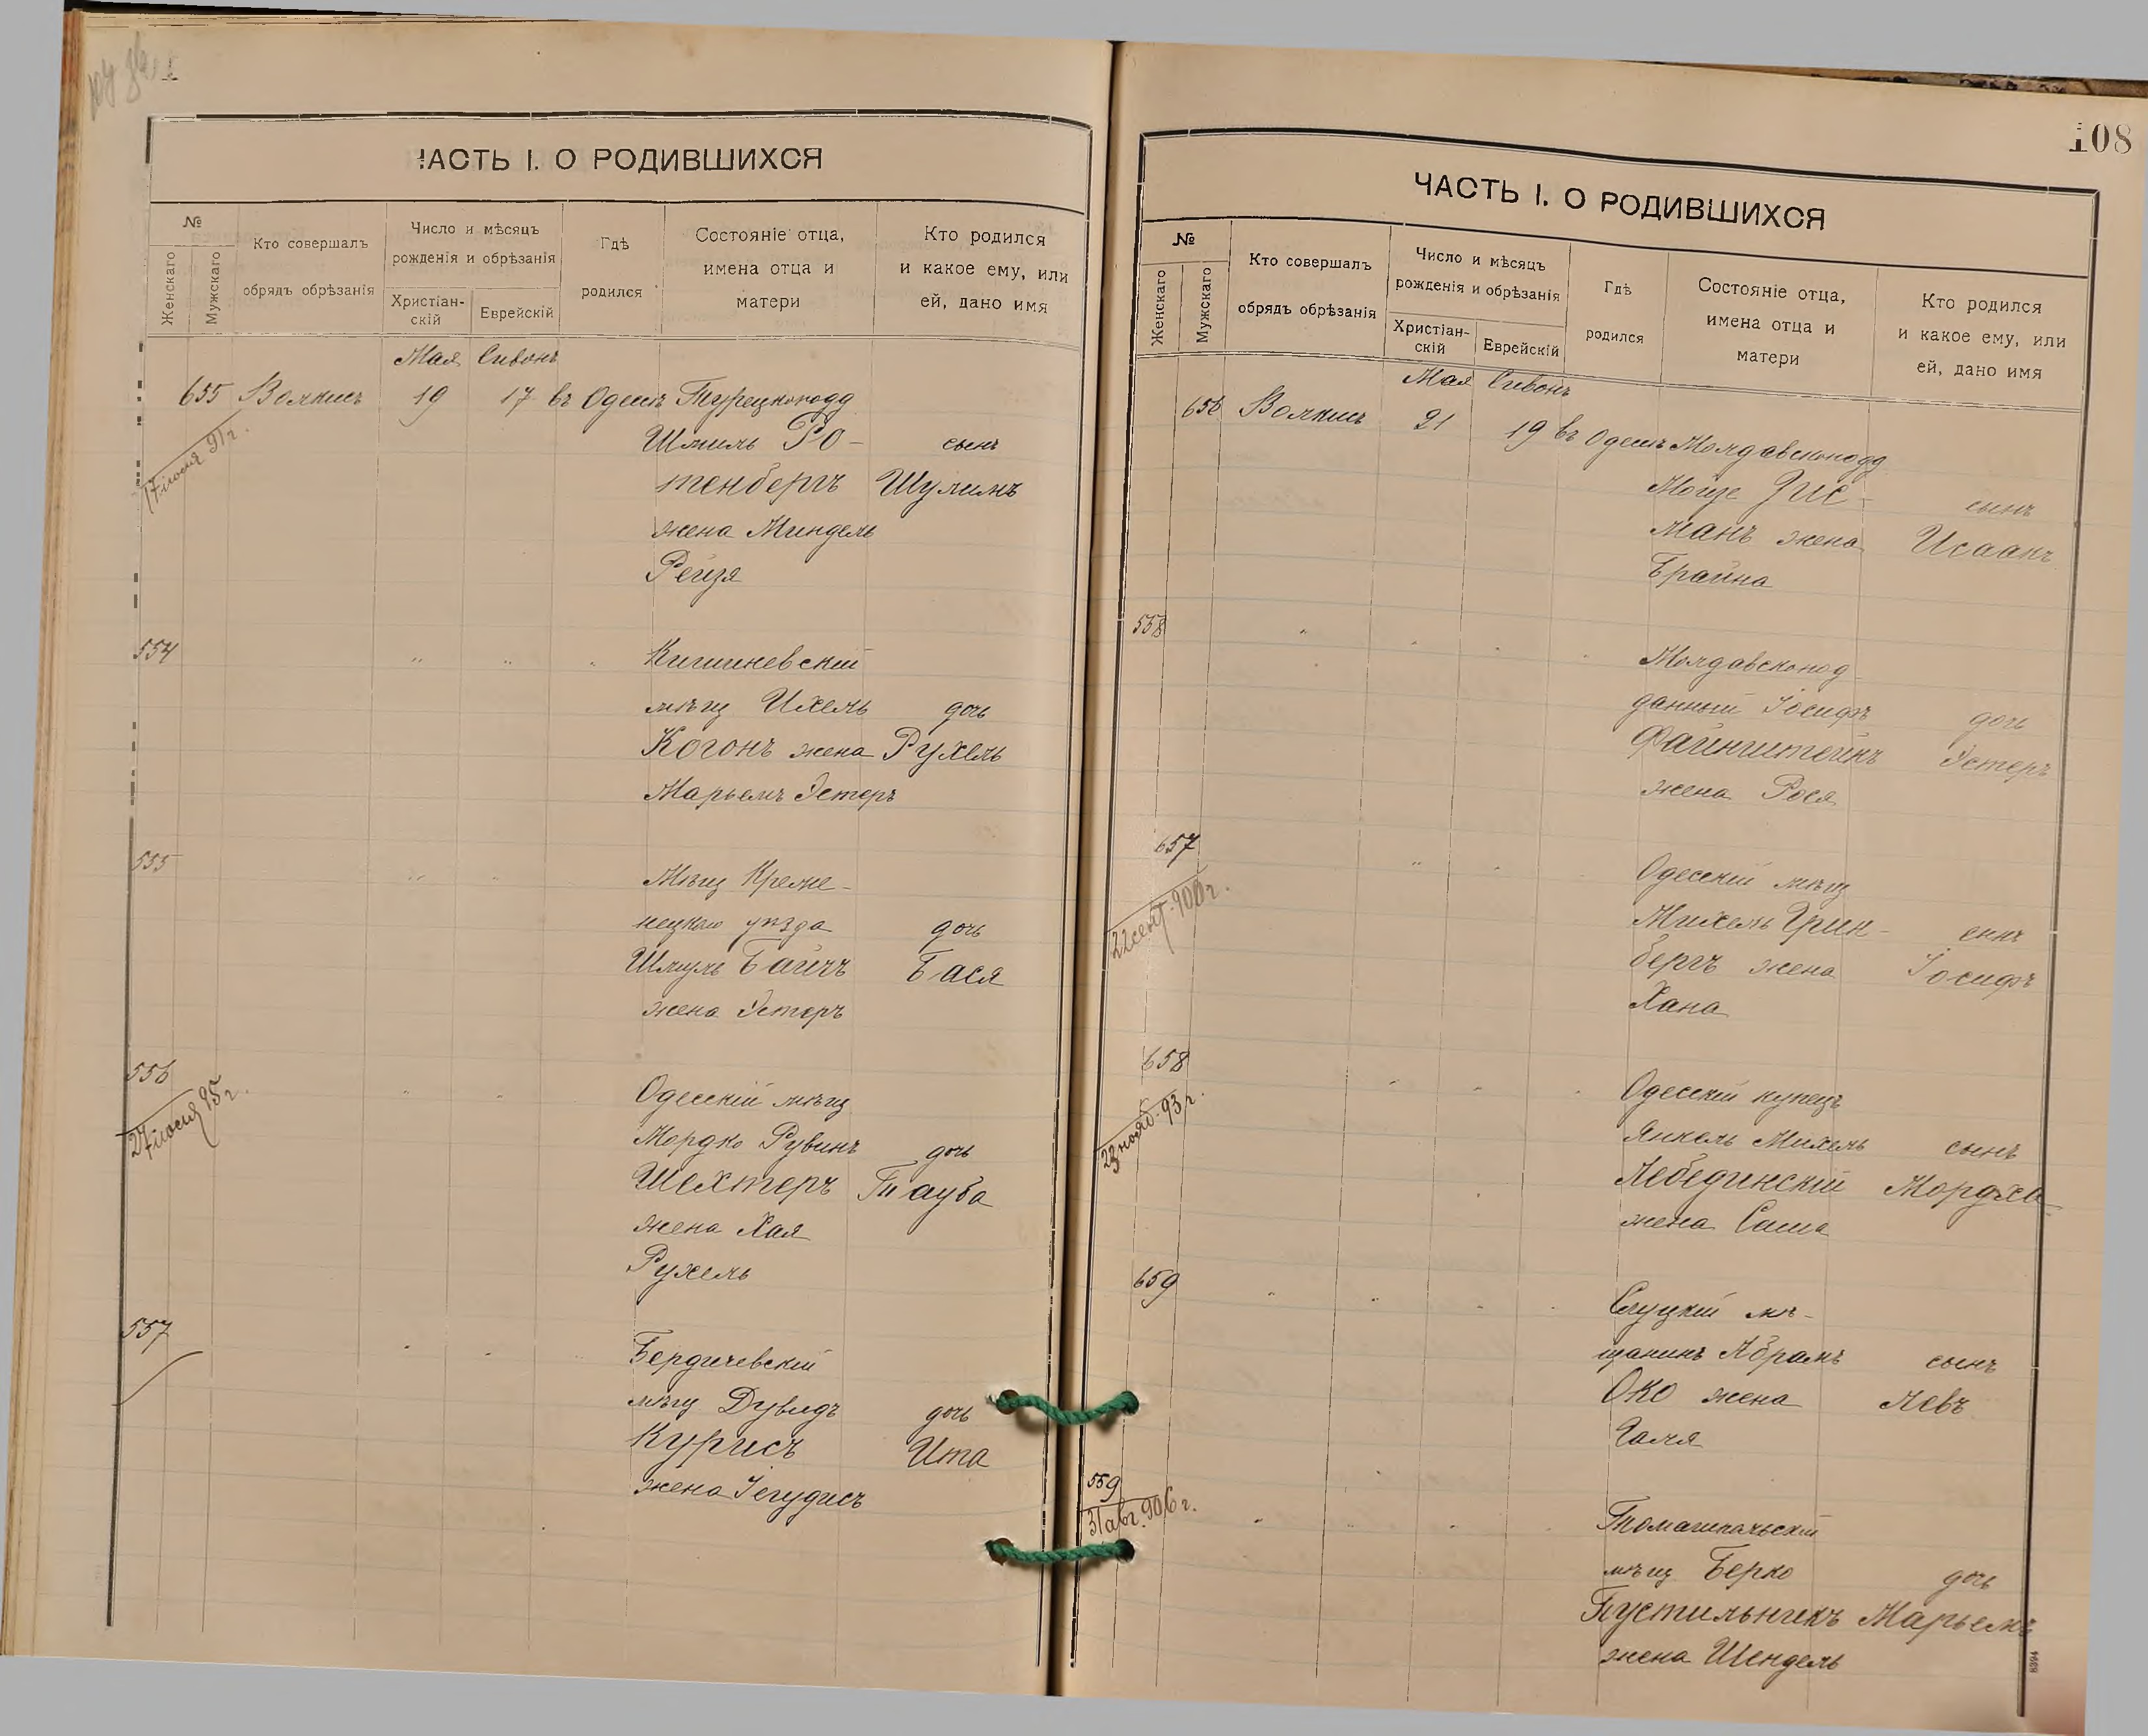 ЧАСТЬ I. О РОДИВШИХСЯ
№
Женскаго
Мужскаго
Кто совершалъ
обрядъ обрѣзанія
Число и мѣсяцъ
рожденія и обрѣзанія
Христіан-
скій
Еврейскій
Гдѣ
родился
Состояніе отца,
имена отца и
матери
Кто родился
и какое ему, или
ей, дано имя
Мая Сивонъ
655 19 17 въ Одессѣ Турецкоподд
17 іюля 91 г.
Шмиль Ро-
сынъ
тенбергъ Шулимъ
жена Миндель
Рейзя
554
Кишиневскій
мѣщ Ихель дочь
Когонъ жена Рухель
Марьемъ Эстеръ
555
Мѣщ Креме-
нецкаго уѣзда дочь
Шмуль Байчъ Бася
жена Эстеръ
556
27 іюля 95 г.
Одесскій мѣщ
Мордко Рувинъ дочь
Шехтеръ Тауба
жена Хая
Рухель
557
Бердичевскій
мѣщ Дувидъ дочь
Курисъ Ита
жена Іегудисъ
108
ЧАСТЬ I. О РОДИВШИХСЯ
№
Женскаго
Мужскаго
Кто совершалъ
обрядъ обрѣзанія
Число и мѣсяцъ
рожденія и обрѣзанія
Христіан-
скій
Еврейскій
Гдѣ
родился
Состояніе отца,
имена отца и
матери
Кто родился
и какое ему, или
ей, дано имя
Мая Сивонъ
656 21 19 въ Одессѣ Молдавскоподд
Мойзе Зис-
сынъ
манъ жена Исаакъ
Брайна
558
Молдавскопод-
данный Іосифъ дочь
Файнштейнъ Эстеръ
жена Рося
657
22 сент. 900 г.
Одесскій мѣщ
Михель Грин- сынъ
бергъ жена Іосифъ
Хана
658
23 нояб. 93 г.
Одесскій купецъ
Янкель Михель сынъ
Лебединскій Мордха
жена Саша
659
Слуцкій мѣ-
щанинъ Абрамъ сынъ
Око жена Левъ
Галя
559
31 авг. 906 г.
Томашпольскій
мѣщ Берко дочь
Пустильникъ Марьемъ
жена Шендель
8394